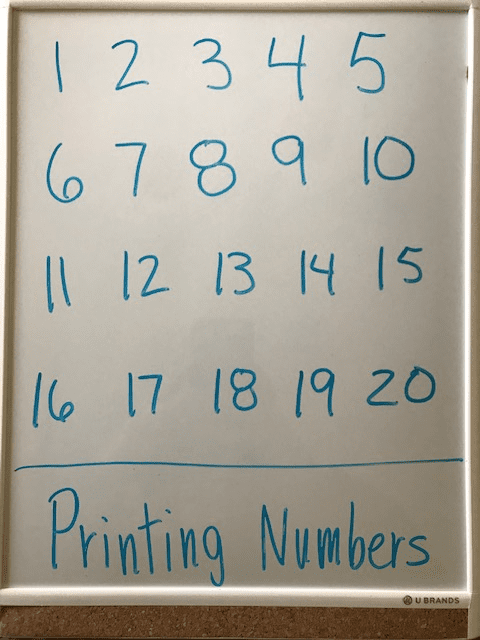 1 2 3 4 5
6 7 8 9 10
11 12 13 14 15
16 17 18 19 20
Printing Numbers
U BRANDS